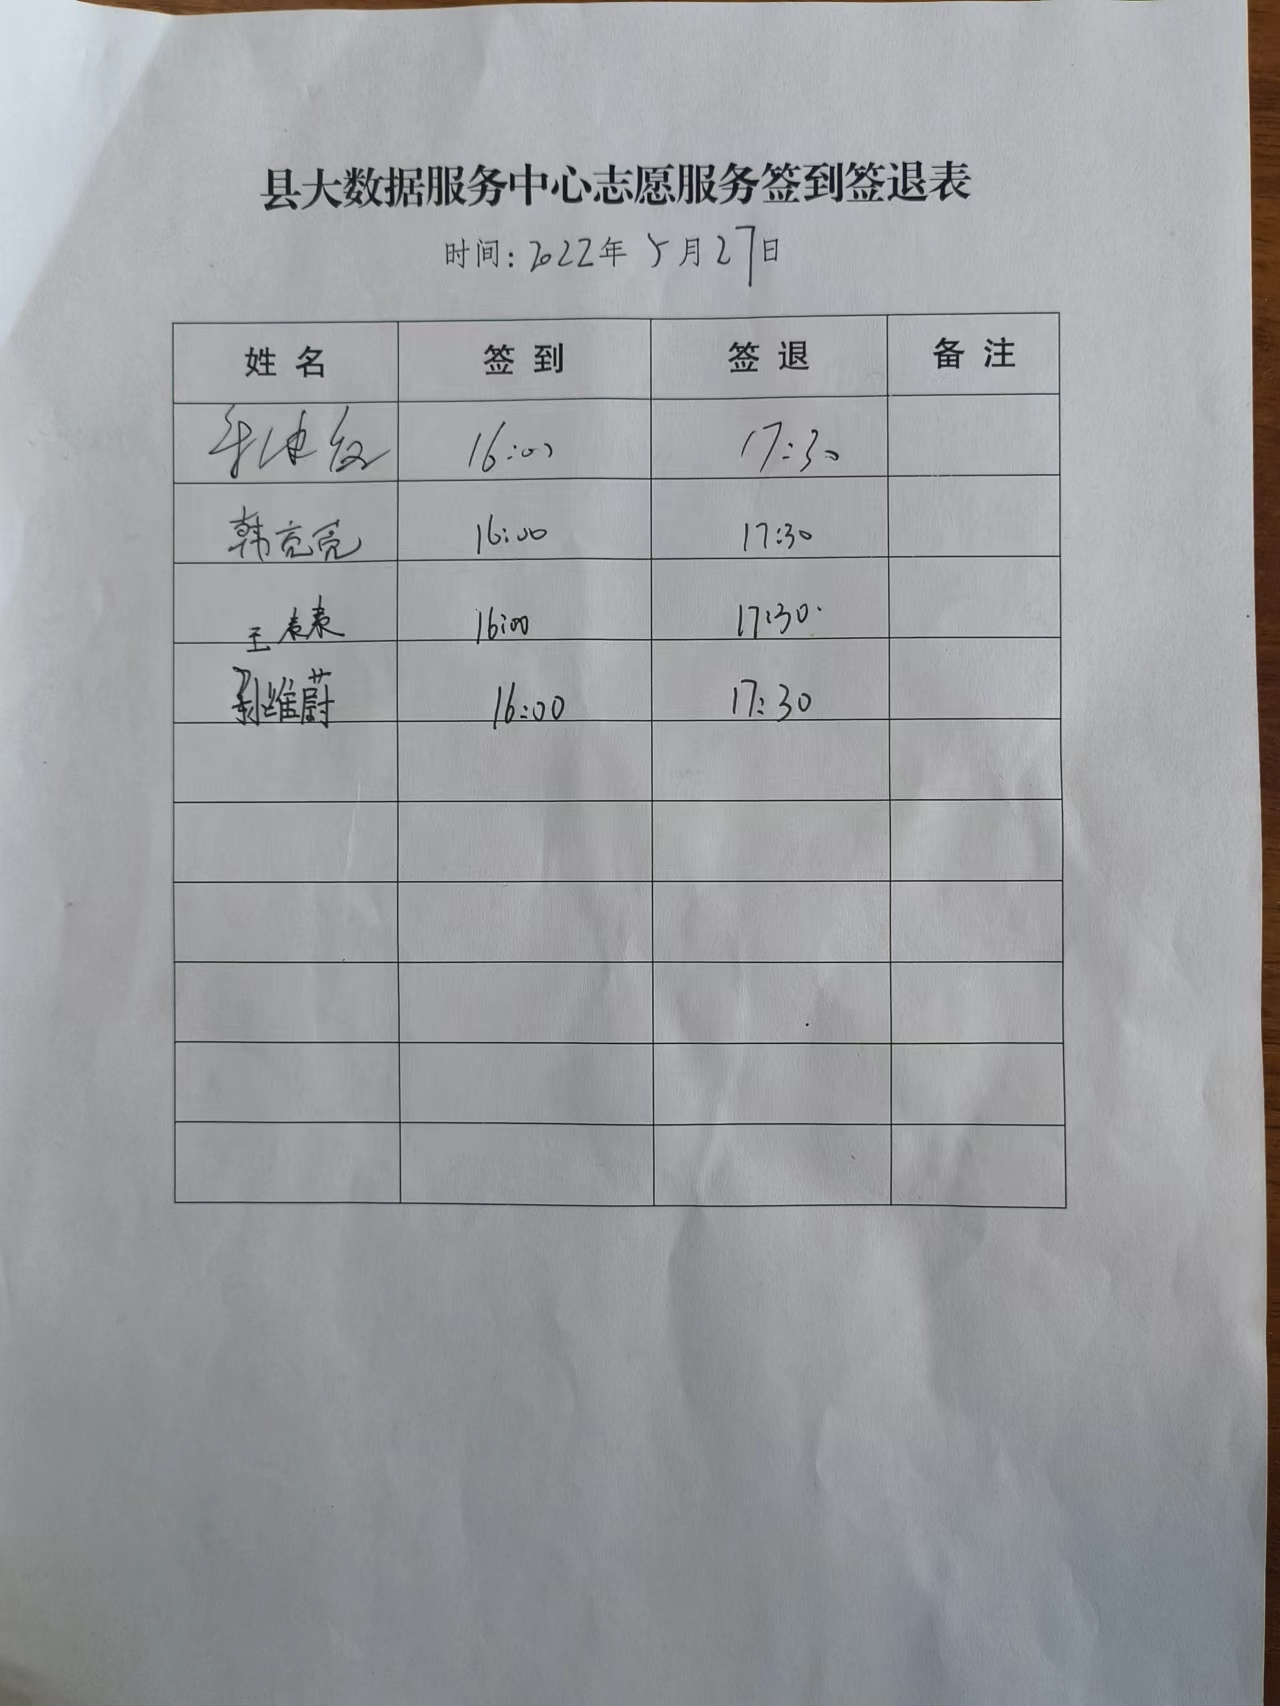 县大数据服务中心志愿服务签到签退表
时间：2022年5月27日
姓名 签到 签退 备注
16:00 17:30
韩亮亮 16:00 17:30
王 16:00 17:30
维蔚 16:00 17:30